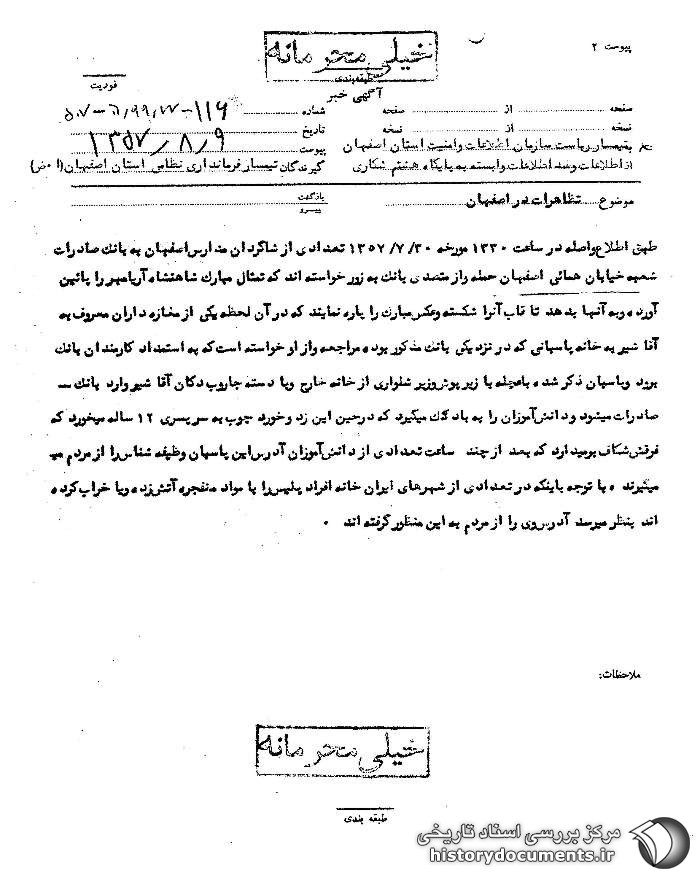 پیوست ۲
خیلی محرمانه
طبقه‌بندی
فوریت
آگهی خبر
صفحه از صفحه شماره ۱۱۶
نسخه از نسخه تاریخ ۱۳۵۷/۸/۹
به تیمسار ریاست سازمان اطلاعات وامنیت استان اصفهان پیوست
از اطلاعات وضد اطلاعات وابسته به پایگاه هشتم شکاری گیرندگان تیمسار فرمانداری نظامی استان اصفهان
موضوع تظاهرات در اصفهان بازگشت
پیرو
طبق اطلاع واصله در ساعت ۱۳۳۰ مورخه ۱۳۵۷/۷/۳۰ تعدادی از شاگردان مدارس اصفهان به بانک صادرات
شعبه خیابان همائی اصفهان حمله واز متصدی بانک به زور خواسته اند که تمثال مبارک شاهنشاه آریامهر را پائین
آورده وبه آنها بدهد تا قاب آنرا شکسته وعکس مبارک را پاره نمایند که در آن لحظه یکی از مغازه داران معروف به
آقا شیر به خانه پاسبانی که در نزدیکی بانک مذکور بوده مراجعه واز او خواسته است که به استمداد کارمندان بانک
برود وپاسبان ذکر شده بامیله با زیر پوش وزیر شلواری از خانه خارج وبا دسته جاروب دکان آقا شیر وارد بانک
صادرات میشود و دانش‌آموزان را به باد کتک میگیرد که درحین این زد و خورد چوب به سر پسری ۱۲ ساله میخورد که
فرقش شکاف برمیدارد که بعد از چند ساعت تعدادی از دانش‌آموزان آدرس این پاسبان وظیفه شناس را از مردم می
میگیرند ه با توجه باینکه در تعدادی از شهرهای ایران خانه افراد پلیس را با مواد منفجره آتش زده ویا خراب کرده
اند بنظر میرسد آدرس وی را از مردم به این منظور گرفته اند .
ملاحظات:
خیلی محرمانه
طبقه بندی
مرکز بررسی اسناد تاریخی
historydocuments.ir